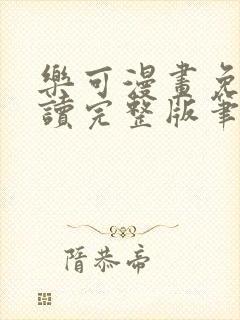 樂可漫畫免
讀完整版筆
隋恭帝